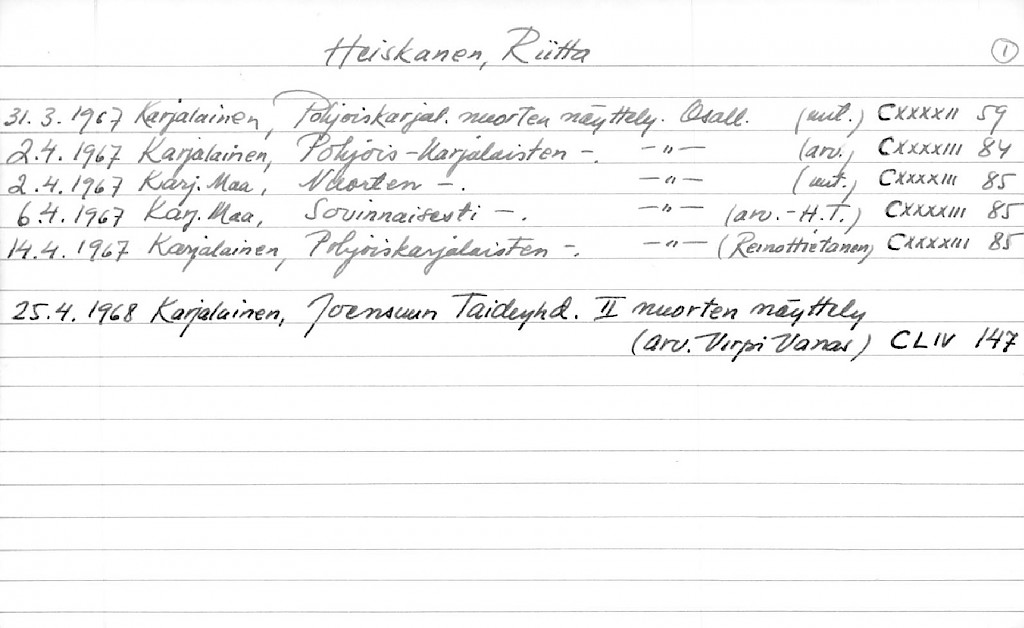 Heiskanen, Riitta ①
31.3.1967 Karjalainen, Pohjoiskarjal. nuorten näyttely. Osall. (uut.) CXXXXII 59
2.4.1967 Karjalainen, Pohjois-Karjalaisten -. -"- (arv.) CXXXXIII 84
2.4.1967 Karj. Maa, Nuorten -. -"- (uut.) CXXXXIII 85
6.4.1967 Karj. Maa, Sovinnaisesti -. -"- (arv.-H.T.) CXXXXIII 85
14.4.1967 Karjalainen, Pohjoiskarjalaisten -. -"- (Reino Hietanen) CXXXXIII 85
25.4.1968 Karjalainen, Joensuun Taideyhd. II nuorten näyttely
(arv. Virpi Vanas) CLIV 147